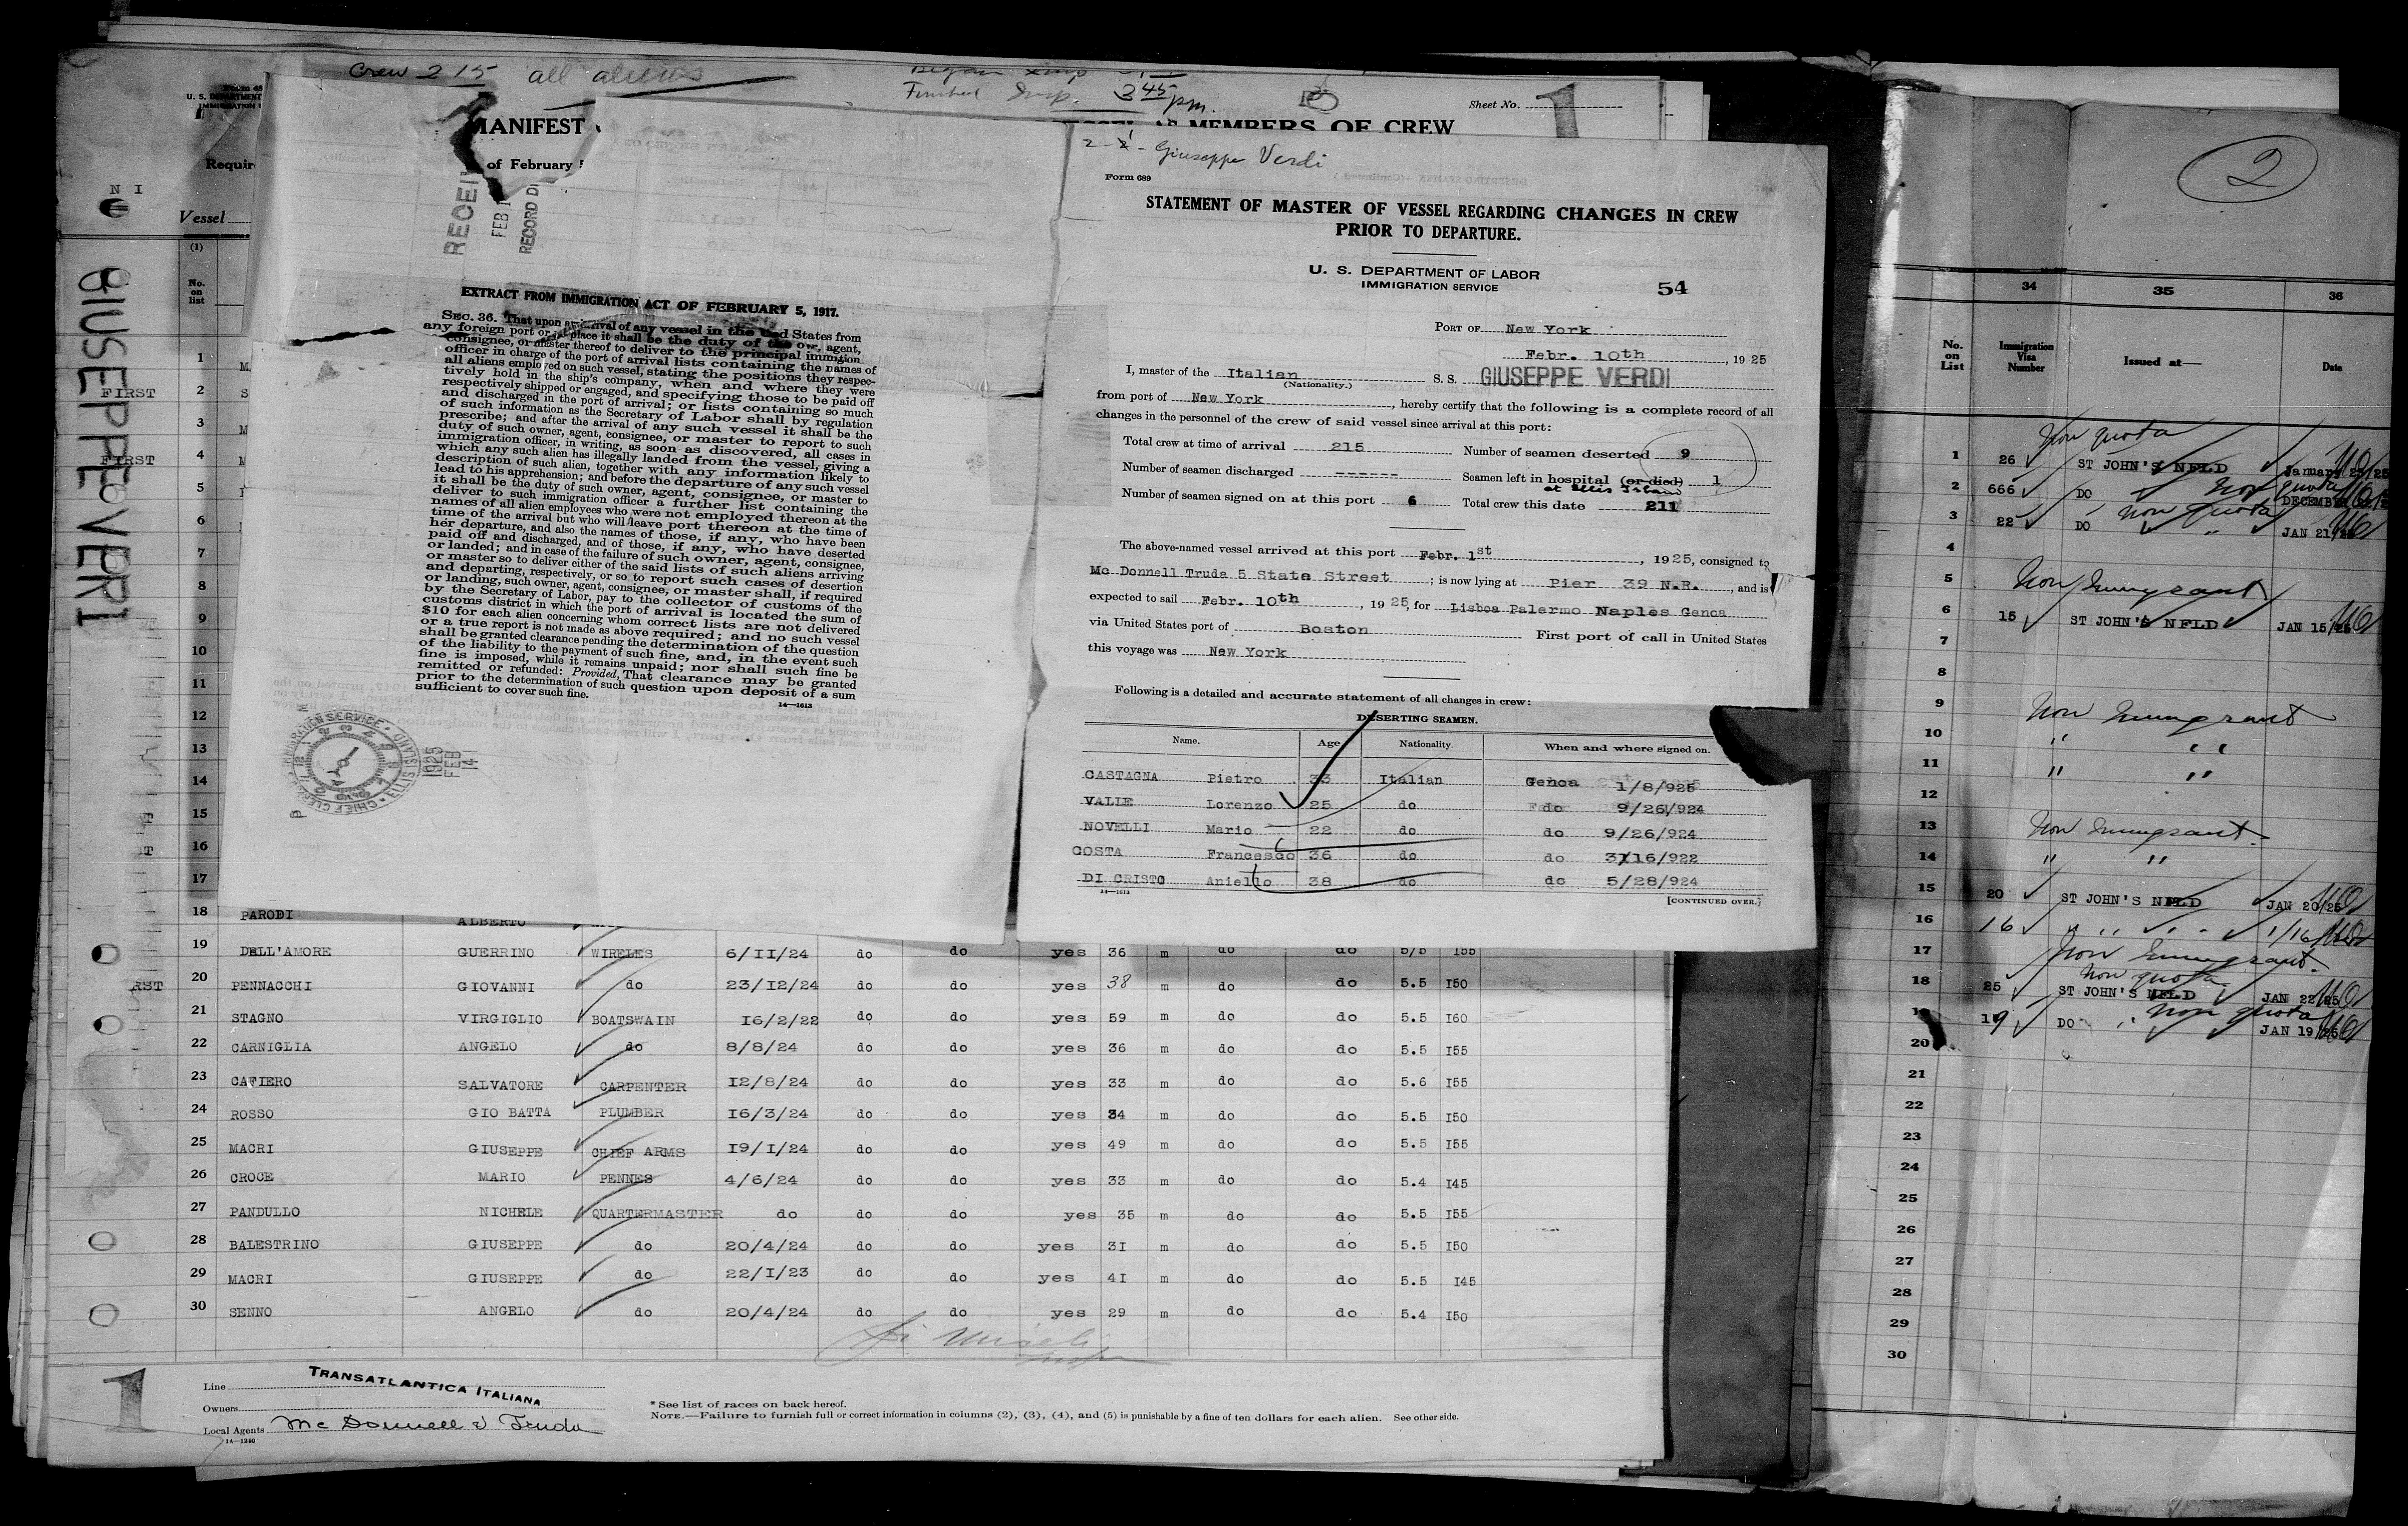 Crew 215 all aliens
Finished Insp. 3 45 pm.
Sheet No.
1
MANIFEST
MEMBERS OF CREW
Requir
of February 5
N I
Vessel
(1)
No. on list
GIUSEPPE VERDI
FIRST
FIRST
RST
1
2
3
4
5
6
7
8
9
10
11
12
13
14
15
16
17
RECEIV
FEB 1
RECORD DI
EXTRACT FROM IMMIGRATION ACT OF FEBRUARY 5, 1917.
SEC. 36. That upon arrival of any vessel in the United States from
any foreign port or place it shall be the duty of the owner, agent,
consignee, or master thereof to deliver to the principal immigration
officer in charge of the port of arrival lists containing the names of
all aliens employed on such vessel, stating the positions they respec-
tively hold in the ship's company, when and where they were
respectively shipped or engaged, and specifying those to be paid off
and discharged in the port of arrival; or lists containing so much
of such information as the Secretary of Labor shall by regulation
prescribe; and after the arrival of any such vessel it shall be the
duty of such owner, agent, consignee, or master to report to such
immigration officer, in writing, as soon as discovered, all cases in
which any such alien has illegally landed from the vessel, giving a
description of such alien, together with any information likely to
lead to his apprehension; and before the departure of any such vessel
it shall be the duty of such owner, agent, consignee, or master to
deliver to such immigration officer a further list containing the
names of all alien employees who were not employed thereon at the
time of the arrival but who will leave port thereon at the time of
her departure, and also the names of those, if any, who have been
paid off and discharged, and of those, if any, who have deserted
or landed; and in case of the failure of such owner, agent, consignee,
or master so to deliver either of the said lists of such aliens arriving
and departing, respectively, or so to report such cases of desertion
or landing, such owner, agent, consignee, or master shall, if required
by the Secretary of Labor, pay to the collector of customs of the
customs district in which the port of arrival is located the sum of
$10 for each alien concerning whom correct lists are not delivered
or a true report is not made as above required; and no such vessel
shall be granted clearance pending the determination of the question
of the liability to the payment of such fine, and, in the event such
fine is imposed, while it remains unpaid; nor shall such fine be
remitted or refunded: Provided, That clearance may be granted
prior to the determination of such question upon deposit of a sum
sufficient to cover such fine.
14—1613
1925 FEB 14
Giuseppe Verdi
Form 689
STATEMENT OF MASTER OF VESSEL REGARDING CHANGES IN CREW
PRIOR TO DEPARTURE.
U. S. DEPARTMENT OF LABOR
IMMIGRATION SERVICE
54
PORT OF New York
Febr. 10th, 1925
I, master of the Italian S. S. GIUSEPPE VERDI
(Nationality.)
from port of New York, hereby certify that the following is a complete record of all
changes in the personnel of the crew of said vessel since arrival at this port:
Total crew at time of arrival 215 Number of seamen deserted 9
Number of seamen discharged ------ Seamen left in hospital (or died) 1
at Ellis Island
Number of seamen signed on at this port 6 Total crew this date 211
The above-named vessel arrived at this port Febr. 1st, 1925, consigned to
Mc Donnell Truda 5 State Street; is now lying at Pier 39 N.R., and is
expected to sail Febr. 10th, 1925, for Lisboa Palermo Naples Genoa
via United States port of Boston First port of call in United States
this voyage was New York
Following is a detailed and accurate statement of all changes in crew:
DESERTING SEAMEN.
Name. Age Nationality. When and where signed on.
CASTAGNA Pietro 33 Italian Genoa 1/8/925
VALLE Lorenzo 25 do do 9/26/924
NOVELLI Mario 22 do do 9/26/924
COSTA Francesco 36 do do 3/16/922
DI CRISTO Aniello 38 do do 5/28/924
14—1613
[CONTINUED OVER.]
18 PARODI ALBERTO
19 DELL'AMORE GUERRINO WIRELES 6/II/24 do do yes 36 m do do 5/5 I55
20 PENNACCHI GIOVANNI do 23/12/24 do do yes 38 m do do 5.5 I50
21 STAGNO VIRGIGLIO BOATSWAIN I6/2/22 do do yes 59 m do do 5.5 I60
22 CARNIGLIA ANGELO do 8/8/24 do do yes 36 m do do 5.5 I55
23 CAFIERO SALVATORE CARPENTER I2/8/24 do do yes 33 m do do 5.6 I55
24 ROSSO GIO BATTA PLUMBER I6/3/24 do do yes 34 m do do 5.5 I50
25 MACRI GIUSEPPE CHIEF ARMS I9/I/24 do do yes 49 m do do 5.5 I55
26 CROCE MARIO PENNES 4/6/24 do do yes 33 m do do 5.4 I45
27 PANDULLO NICHELE QUARTERMASTER do do do yes 35 m do do 5.5 I55
28 BALESTRINO GIUSEPPE do 20/4/24 do do yes 3I m do do 5.5 I50
29 MACRI GIUSEPPE do 22/I/23 do do yes 4I m do do 5.5 I45
30 SENNO ANGELO do 20/4/24 do do yes 29 m do do 5.4 I50
1
Line TRANSATLANTICA ITALIANA
Owners
Local Agents Mc Donnell & Truda
14—1240
* See list of races on back hereof.
NOTE.—Failure to furnish full or correct information in columns (2), (3), (4), and (5) is punishable by a fine of ten dollars for each alien. See other side.
2
34 35 36
No. on List Immigration Visa Number Issued at— Date
Non quota
1 26 ST JOHN'S NFLD January 23/25
2 666 DO Non quota DECEMBER
3 22 DO Non quota JAN 21/25
4
5 Non Immigrant
6 15 ST JOHN'S NFLD JAN 15/25
7
8
9 Non Immigrant
10 " "
11 " "
12
13 Non Immigrant
14 " "
15 20 ST JOHN'S NFLD JAN 20/25
16 16 " " 1/16
17 Non Immigrant
Non quota
18 25 ST JOHN'S NFLD JAN 22/25
19 19 DO Non quota JAN 19/25
20
21
22
23
24
25
26
27
28
29
30